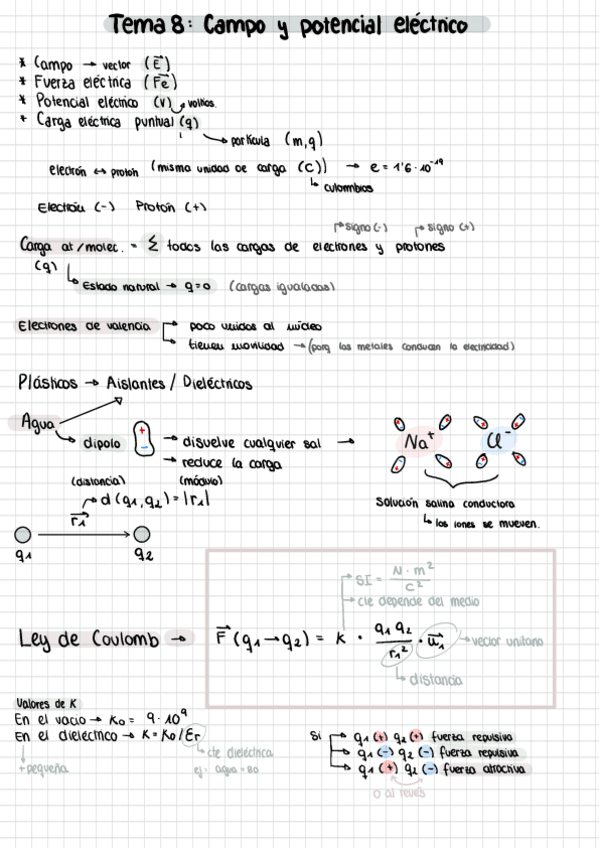 Tema 8: Campo y potencial eléctrico
* Campo → vector (E⃗)
* Fuerza eléctrica (F⃗e)
* Potencial eléctrico (V) → voltios.
* Carga eléctrica puntual (q)
→ partícula (m,q)
electrón ↔ protón (misma unidad de carga (C)) → e = 1'6 · 10⁻¹⁹
↳ culombios
Electrón (-) Protón (+)
signo (-) signo (+)
Carga at/molec. = Σ todos las cargas de electrones y protones
(q)
↳ Estado natural → q=0 (cargas igualadas)
Electrones de valencia → poco unidos al núcleo
→ tienen movilidad → (porq los metales conducen la electricidad)
Plásticos → Aislantes / Dieléctricos
Agua
→ dipolo + - → disuelve cualquier sal → Na⁺ Cl⁻
→ reduce la carga
(distancia) (módulo)
d(q1,q2) = |r1|
r⃗1
q1 q2
Solución salina conductora
↳ los iones se mueven.
SI = N·m² / C²
cte depende del medio
Ley de Coulomb → F⃗ (q1→q2) = K · q1 q2 / r1² · u⃗1 → vector unitario
↳ distancia
Valores de K
En el vacío → K0 = 9·10⁹
En el dieléctrico → K = K0/Er
↳ cte dieléctrica
+ pequeña
ej: agua = 80
Si → q1 (+) q2 (+) fuerza repulsiva
→ q1 (-) q2 (-) fuerza repulsiva
→ q1 (+) q2 (-) fuerza atractiva
o al revés